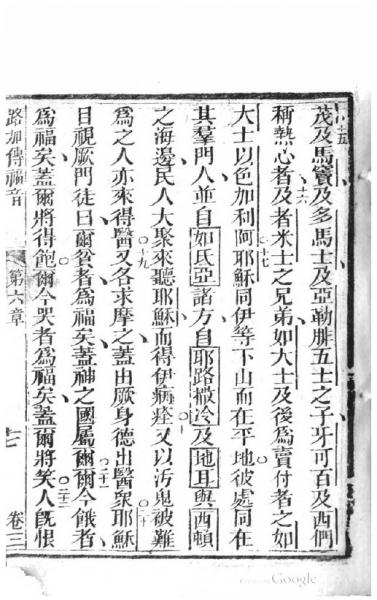 十五
茂及馬竇及多馬士及亞勒腓五士之子牙可百及西們
十六
稱熱心者及者米士之兄弟如大士及後為賣付者之如
十七
大士以色加利阿耶穌同伊等下山而在平地彼處同在
其羣門人並自如氏亞諸方自耶路撒冷及地耳與西頓
十八
之海邊民人大聚來聽耶穌而得伊病痊又以汚鬼被難
十九
為之人亦來得醫又各求摩之蓋出厥身德出醫眾耶穌
二十
目視厥門徒曰爾貧者為福矣蓋神之國屬爾爾今餓者
二十一
為福矣蓋爾將得飽爾今哭者為福矣蓋爾將笑人旣恨
二十二
路加傳福音
第六章
七
卷三
Google